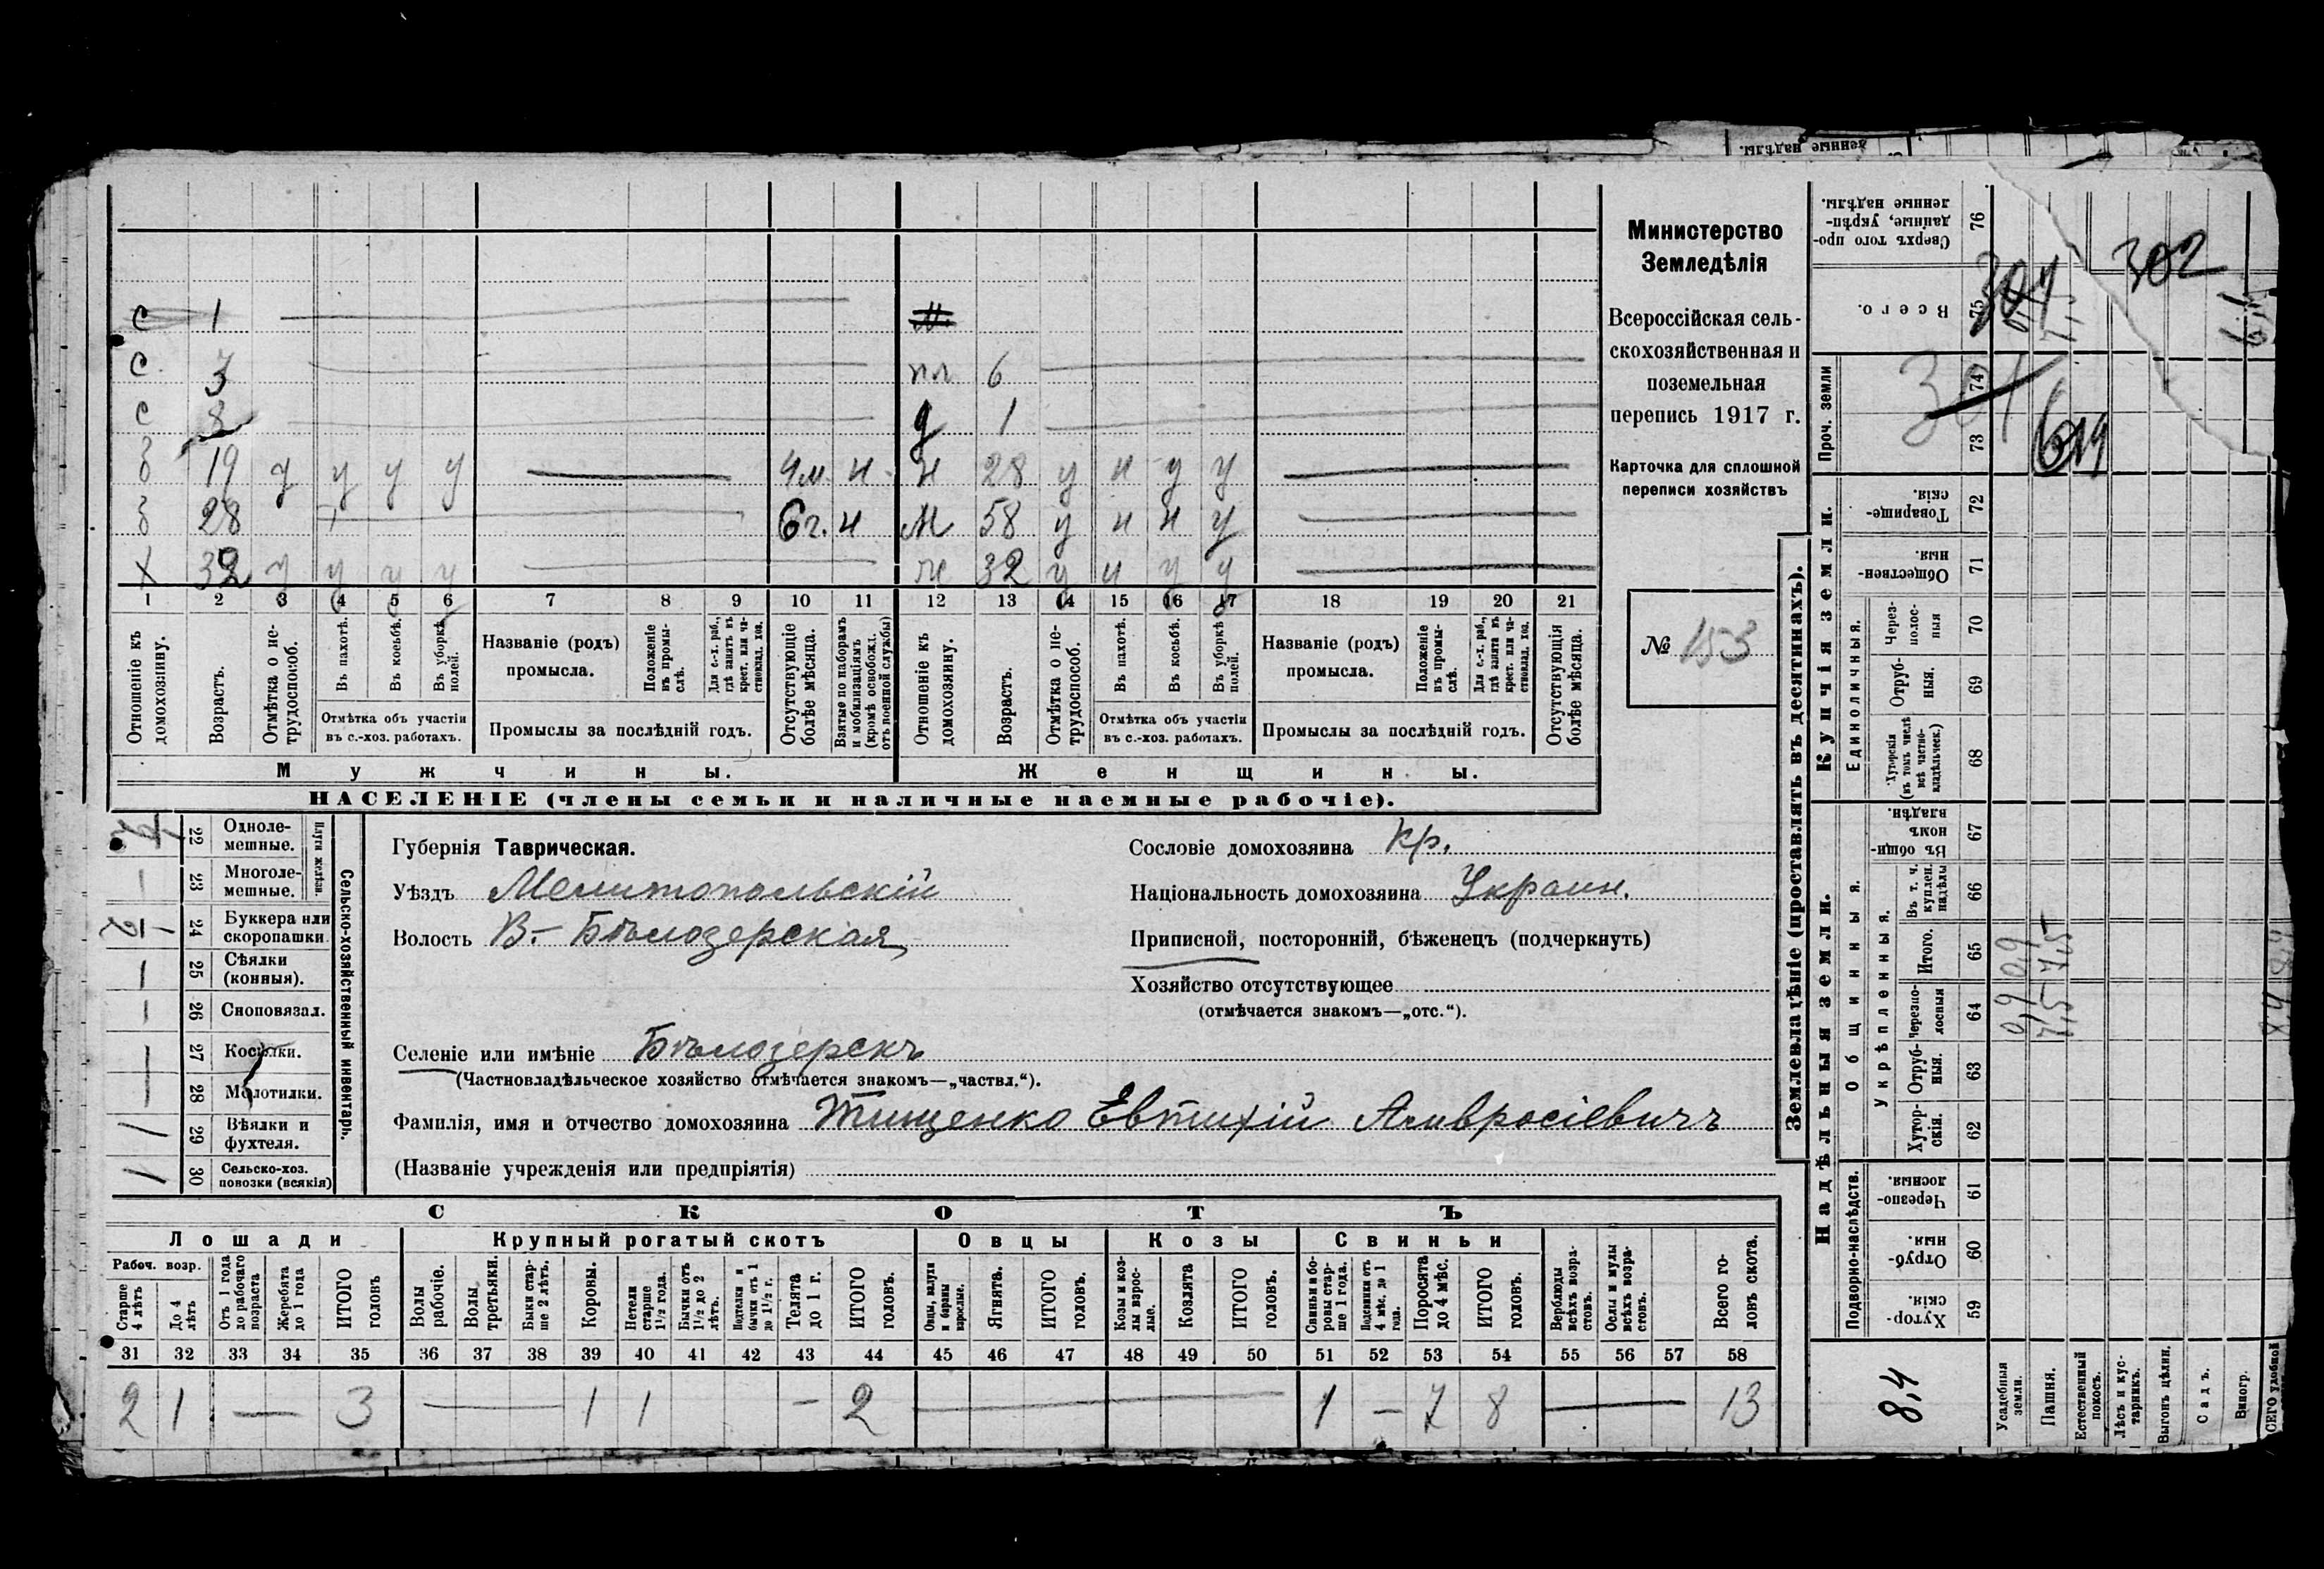 ленные надѣлы.
с 1
с 3 пл 6
с 8 д 1
з 19 у у у у 4м. н н 28 у н у у
з 28 6г. н м 58 у н н у
х 32 у у у у ж 32 у н у у
1 2 3 4 5 6 7 8 9 10 11 12 13 14 15 16 17 18 19 20 21
Отношеніе къ домохозяину.
Возрастъ.
Отмѣтка о не-
трудоспособ.
Въ пахотѣ.
Въ косьбѣ.
Въ уборкѣ
полей.
Отмѣтка объ участіи
въ с.-хоз. работахъ.
Названіе (родъ)
промысла.
Положеніе
въ промы-
слѣ.
Для с.-х. раб.,
гдѣ занятъ въ
крест. или ча-
стновлад. хоз.
Промыслы за послѣдній годъ.
Отсутствующіе
болѣе мѣсяца.
Взятые по наборамъ
и мобилизаціямъ
(кромѣ освобожд.
отъ военной службы)
Отношеніе къ
домохозяину.
Возрастъ.
Отмѣтка о не-
трудоспособ.
Въ пахотѣ.
Въ косьбѣ.
Въ уборкѣ
полей.
Отмѣтка объ участіи
въ с.-хоз. работахъ.
Названіе (родъ)
промысла.
Положеніе
въ промы-
слѣ.
Для с.-х. раб.,
гдѣ занята въ
крест. или ча-
стновлад. хоз.
Промыслы за послѣдній годъ.
Отсутствующія
болѣе мѣсяца.
Мужчины.
Женщины.
НАСЕЛЕНІЕ (члены семьи и наличные наемные рабочіе).
Министерство
Земледѣлія
Всероссійская сель-
скохозяйственная и
поземельная
перепись 1917 г.
Карточка для сплошной
переписи хозяйствъ
№ 153
Сельско-хозяйственный инвентарь.
Плуги желѣзн.
22 Одноле-
мешные.
23 Многоле-
мешные.
24 Буккера или
скоропашки.
25 Сѣялки
(конныя).
26 Сноповязал.
27 Косилки.
28 Молотилки.
29 Вѣялки и
фухтеля.
1
30 Сельско-хоз.
повозки (всякія)
1
Губернія Таврическая.
Уѣздъ Мелитопольскій
Волость В.- Бѣлозерская
Сословіе домохозяина Кр.
Національность домохозяина Украин.
Приписной, посторонній, бѣженецъ (подчеркнуть)
Хозяйство отсутствующее
(отмѣчается знакомъ—„отс.“).
Селеніе или имѣніе Бѣлозерскъ
(Частновладѣльческое хозяйство отмѣчается знакомъ—„частвл.“).
Фамилія, имя и отчество домохозяина Тищенко Евтихій Амвросіевичъ
(Названіе учрежденія или предпріятія)
СКОТЪ
Лошади
Крупный рогатый скотъ
Овцы
Козы
Свиньи
Рабоч. возр.
Старше
4 лѣтъ
До 4
лѣтъ
Отъ 1 года
до рабочаго
возраста
Жеребята
до 1 года
ИТОГО
головъ
Волы
рабочіе.
Волы
третьяки.
Быки стар-
ше 2 лѣтъ.
Коровы.
Нетели
старше
1½ года.
Бычки отъ
1½ до 2
лѣтъ.
Подтелки и
бычки отъ 1
до 1½ г.
Телята
до 1 г.
ИТОГО
головъ.
Овцы, валухи
и бараны
взрослые.
Ягнята.
ИТОГО
головъ.
Козы и коз-
лы взрос-
лые.
Козлята
ИТОГО
головъ.
Свиньи и бо-
ровы стар-
ше 1 года.
Подсвинки отъ
4 мѣс. до 1
года.
Поросята
до 4 мѣс.
ИТОГО
головъ.
Верблюды
всѣхъ возра-
стовъ.
Ослы и мулы
всѣхъ возра-
стовъ.
Всего го-
ловъ скота.
31 32 33 34 35 36 37 38 39 40 41 42 43 44 45 46 47 48 49 50 51 52 53 54 55 56 57 58
2 1 — 3 — 1 1 — 2 — 1 — 7 8 — 13
Землевладѣніе (проставлять въ десятинахъ).
Надѣльныя земли.
Купчія земли.
Проч. земли
Подворно-наслѣдств.
Общинныя.
Укрѣпленныя.
Единоличныя.
59 Хутор-
скія.
60 Отруб-
ныя.
61 Черезпо-
лосныя.
62 Хутор-
скія.
63 Отруб-
ныя.
64 Черезпо-
лосныя
65 Итого.
66 Въ т. ч.
куплен.
надѣлы
67 Въ общи-
номъ
владѣн.
68 Хуторскія
(въ томъ числѣ
всѣ частно-
владѣльческ.)
69 Отруб-
ныя.
70 Через-
полос-
ныя
71 Обществен-
ныя.
72 Товарище-
скія.
73
74
75 Всего.
76 Сверхъ того про-
данные, укрѣп-
ленные надѣлы.
302
301
619
8,4
Усадебныя
земли.
0,9 0,9
Пашня.
7,5 7,5
Естественный
покосъ.
Лѣсъ и кус-
тарникъ.
Выгонъ цѣлин.
Садъ.
Виногр.
8,4 8,4